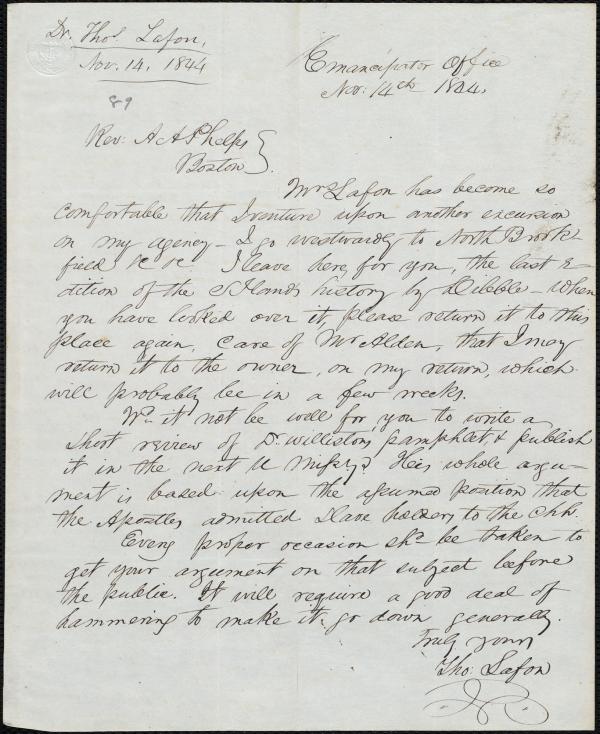 Dr. Thos Lafon,
Nov. 14, 1844
Emancipator Office
Nov: 14th 1844.
89
Rev: A A Phelps }
Boston }
Mrs Lafon has become so
comfortable that I venture upon another excursion
on my agency - I go westwardly to North Brook-
field &c &c. I leave here, for you, the last e-
dition of the Islands history by Dibble - when
you have looked over it, please return it to this
place again, care of Mr Alden, that I may
return it to the owner, on my return, which
will probably be in a few weeks.
Wd it not be well for you to write a
short review of Dr Willistons pamphlet & publish
it in the next U Missry? His whole argu-
ment is based upon the assumed position that
the Apostles admitted Slave holders to the Chh.
Every proper occasion shd be taken to
get your argument on that subject before
the public. It will require a good deal of
hammering to make it go down generally.
Truly yours
Tho: Lafon